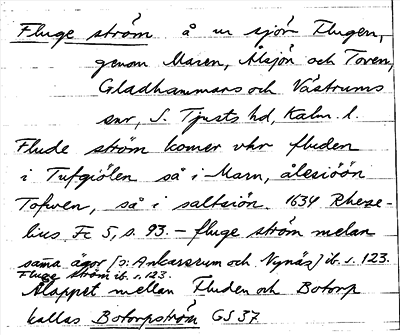 Fluge ström å ur sjön Flugen,
genom Maren, Ålsjön och Toven,
Gladhammars och Västrums
snr, S. Tjusts hd, Kalm. l.
Flude ström komer uhr fluden
i Tufgiölen så i Marn, ålesiöön
Tofwen, så i saltsiön. 1634 Rheze-
lius Fc 5, s. 93. – fluge ström melan
sama ägor (ɔ: Ankarsrum och Nynäs) ib. s. 123.
Fluge ström ib. s. 123.
Ålappet mellan Fluden och Botorp
kallas Botorpström GS 37.